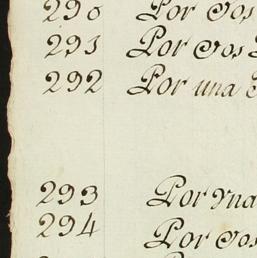 290 Por Dos
291 Por Dos
292 Por una
293 Por Yna
294 Por Dos